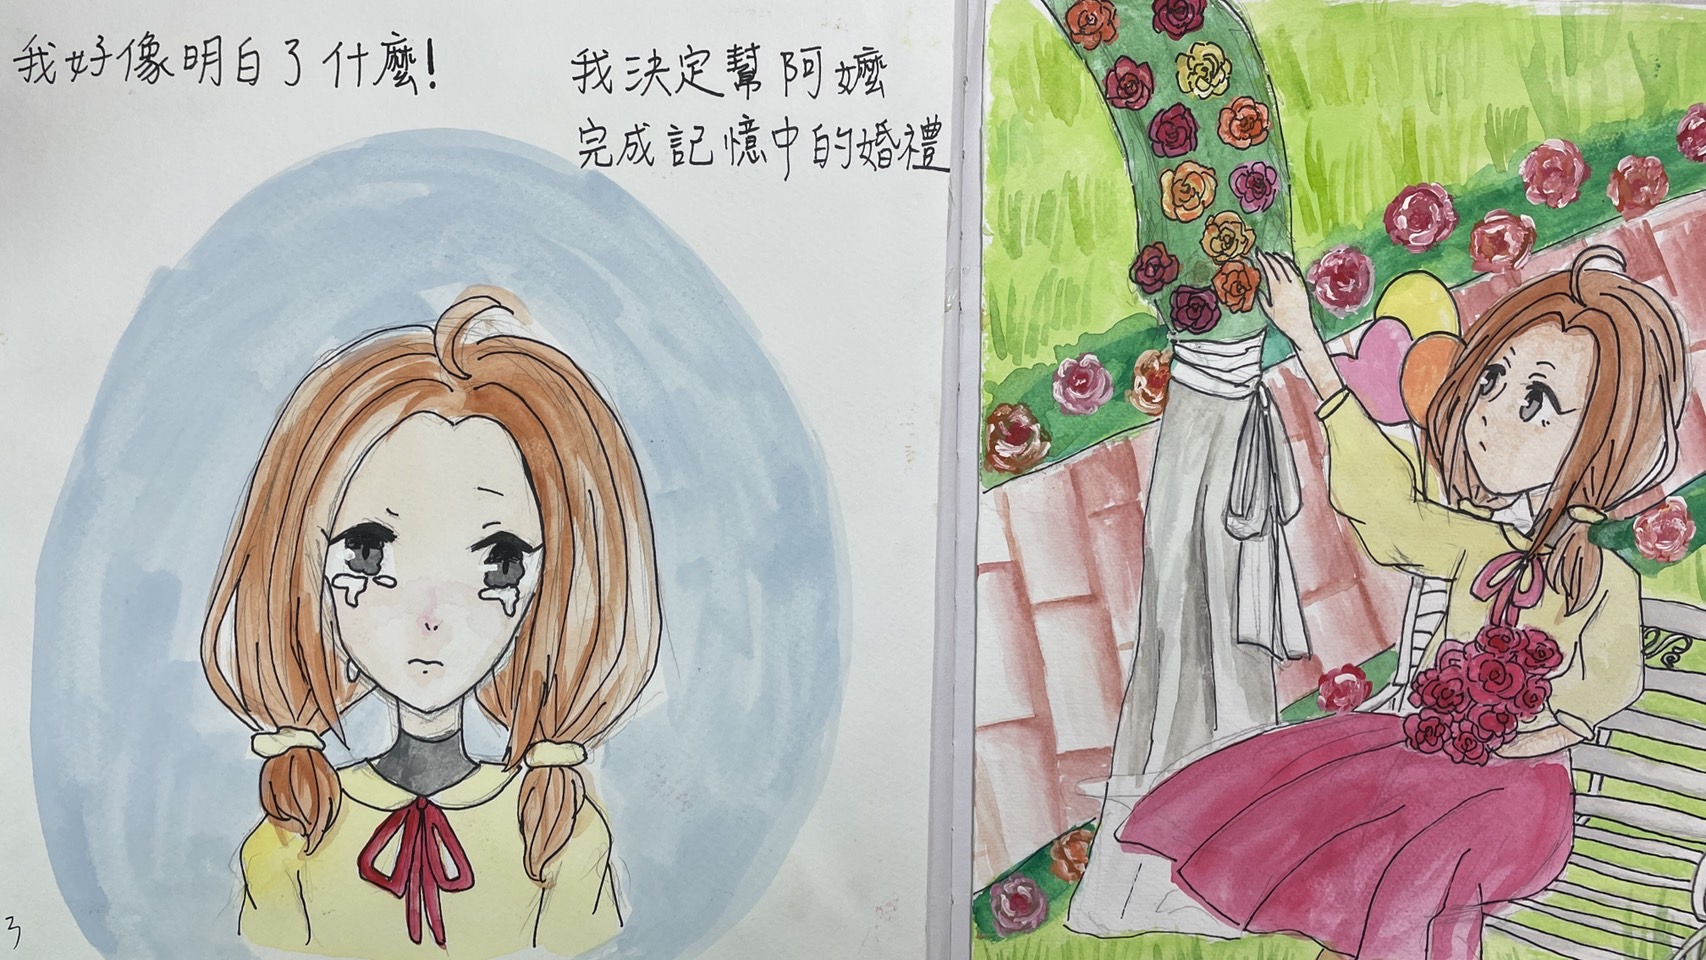 我好像明白了什麼!
我決定幫阿嬤
完成記憶中的婚禮
3